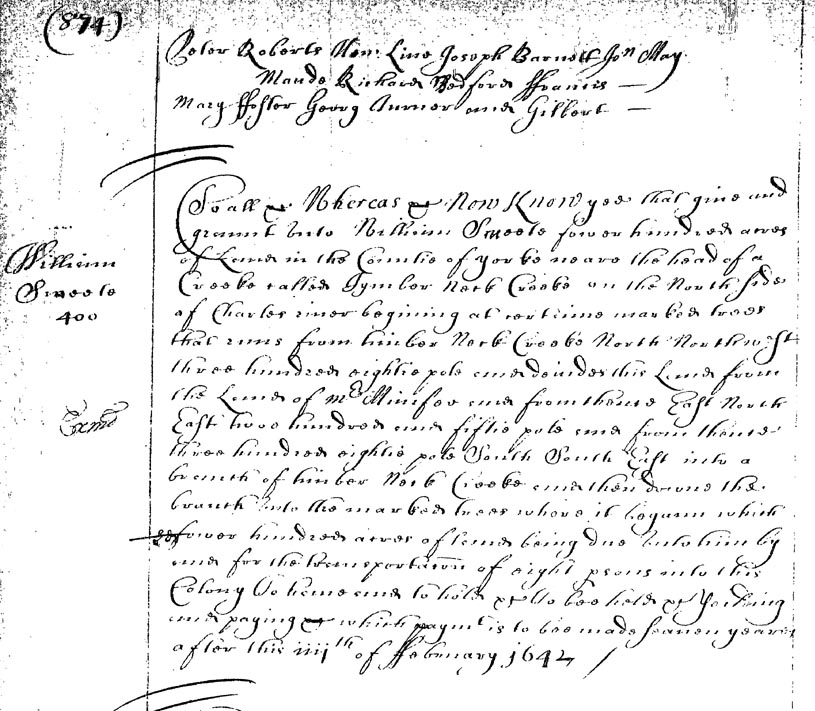 (874)
Peter Roberts Hen: Line Joseph Barnett Jon May
Maude Richard Bedford ffrancis —
Mary ffoster Georg Turner and Gilbert —
To all &c Whereas &c Now Know yee that give and
graunt unto William Sweete fower hundred acres
of Land in the Countie of yorke neare the head of a
Creeke called Tymber Neck Creeke on the North side
of Charles river begining at certaine marked trees
that runs from timber Neck Creeke North Northwest
three hundred eightie pole and devides this Land from
the Land of mr Minifee and from thence East North
East two hundred and fiftie pole and from thence
three hundred eightie pole South South East into a
branch of timber Neck Creeke and then downe the
branch unto the marked trees where it begann which
sd fower hundred acres of land being due unto him by
and for the transportacon of eight psons into this
Colony To have and to hold &c To bee held &c Yeilding
and paying &c which paymt is to bee made seaven yeares
after this iiiith of ffebruary 1642 /
William
Sweete
400
Exmd